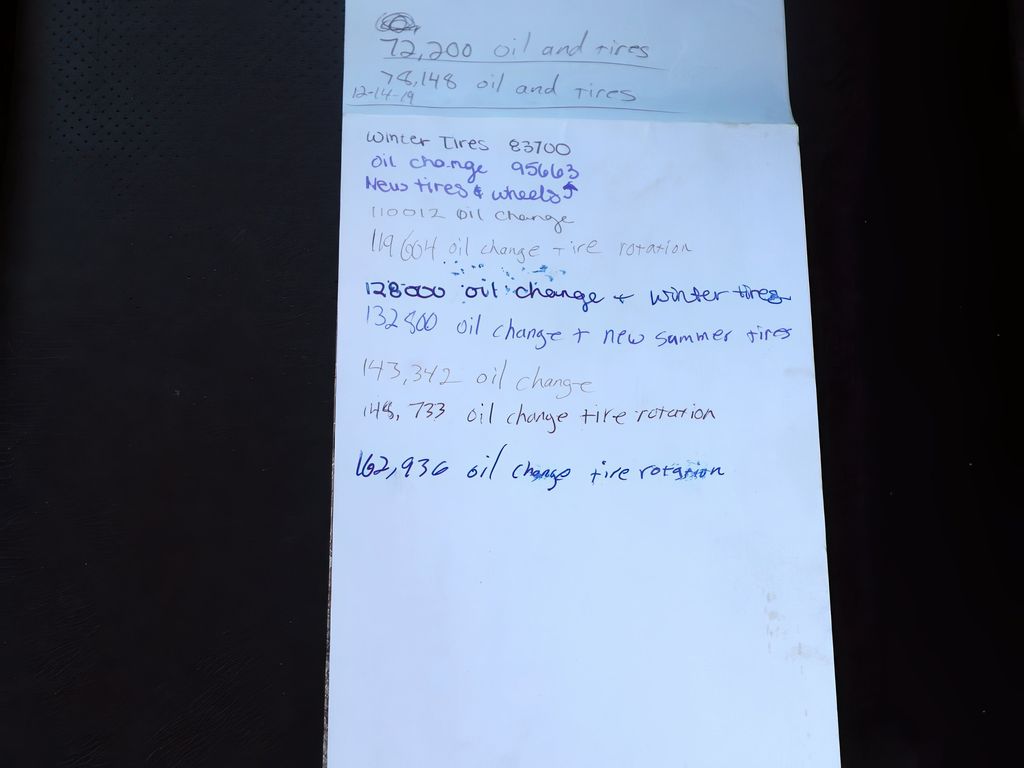 72,200 oil and tires
78,148 oil and tires
12-14-19
Winter Tires 83700
oil change 95663
New tires & wheels ↑
110012 oil change
119604 oil change tire rotation
128000 oil change + winter tires
132800 oil change + new summer tires
143,342 oil change
148,733 oil change tire rotation
162,936 oil change tire rotation